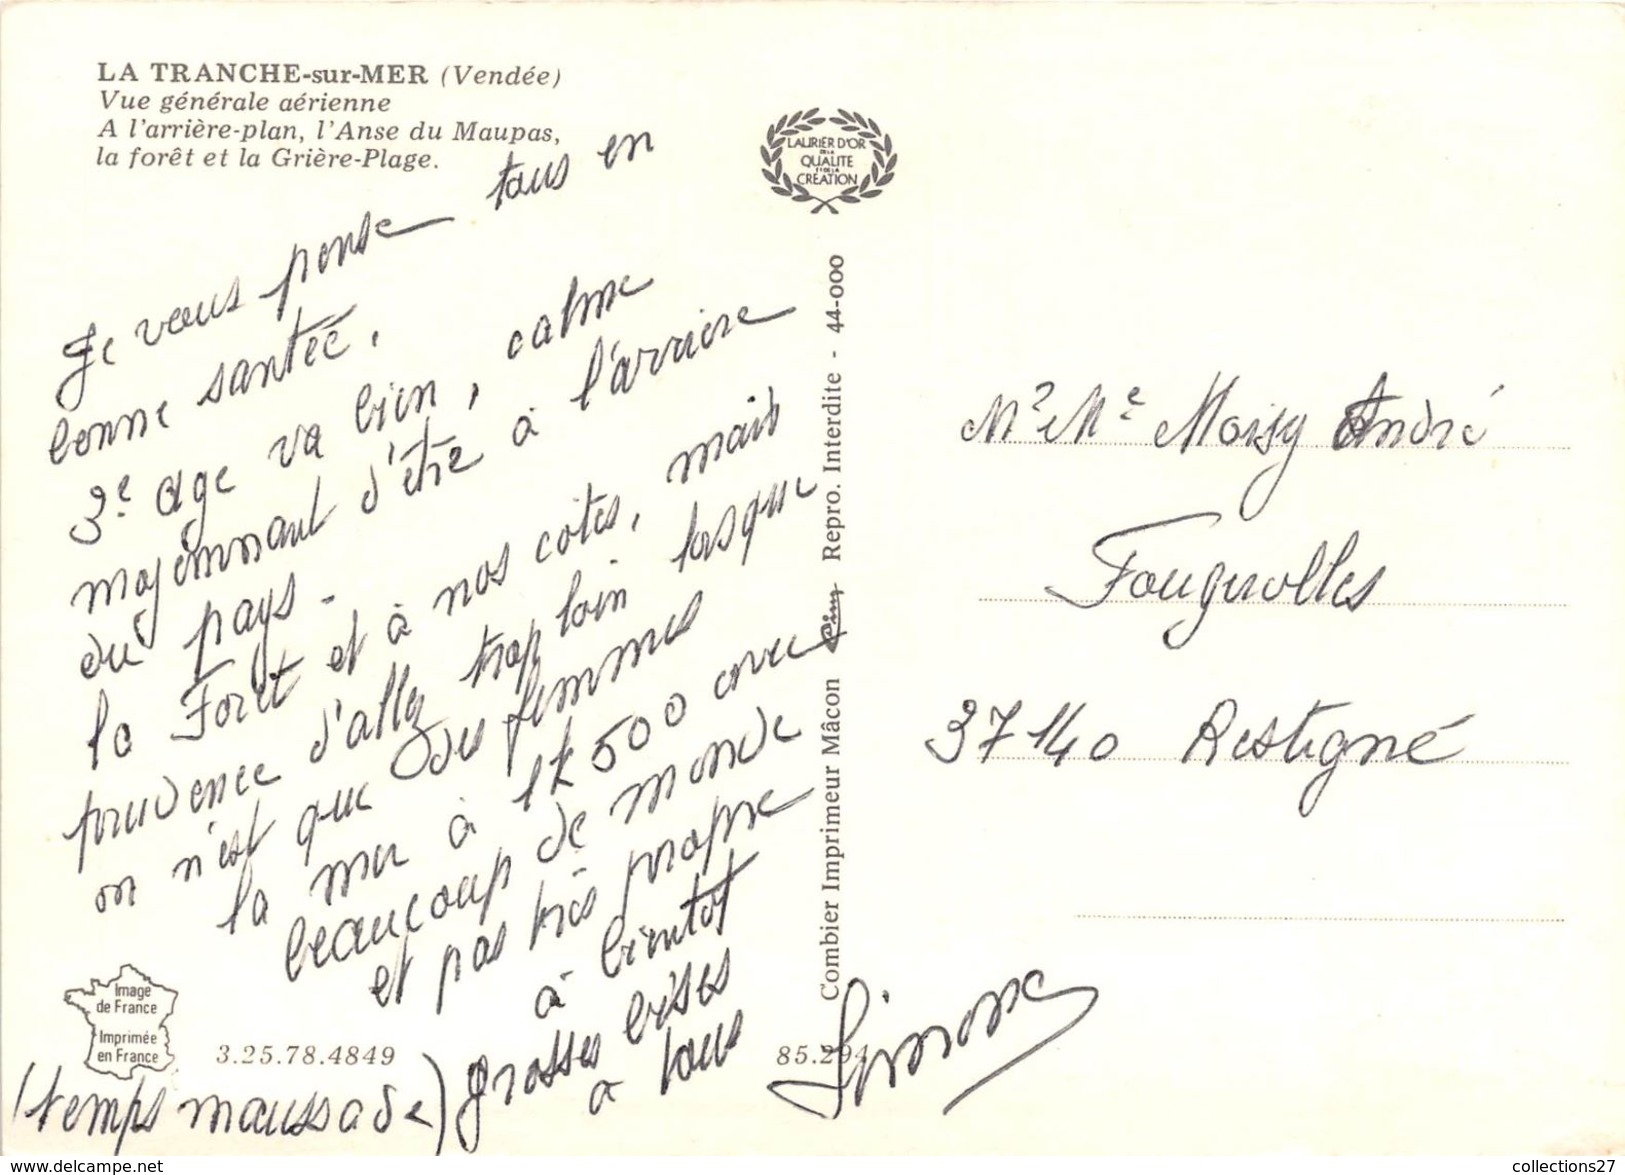 LA TRANCHE-sur-MER (Vendée)
Vue générale aérienne
A l'arrière-plan, l'Anse du Maupas,
la forêt et la Grière-Plage.
LAURIER D'OR
DE LA
QUALITE
ET DE LA
CRÉATION
Je vous pense tous en
bonne santée.
3e age va bien, calme
mayennant d'être à l'arrière
du pays -
la Forêt et à nos côtés, mais
prudence d'allez trop loin lasque
on n'est que des femmes
la mer à 1k 500 avec
beaucoup de monde
et pas très propre
à bientot
grosses bises
a tous
(temps maussade)
Simone
Image
de France
Imprimée
en France
3.25.78.4849
85.294
Combier Imprimeur Mâcon Cim Repro. Interdite - 44-000
Mr Me Moisy André
Fougerolles
37140 Restigné
collections27